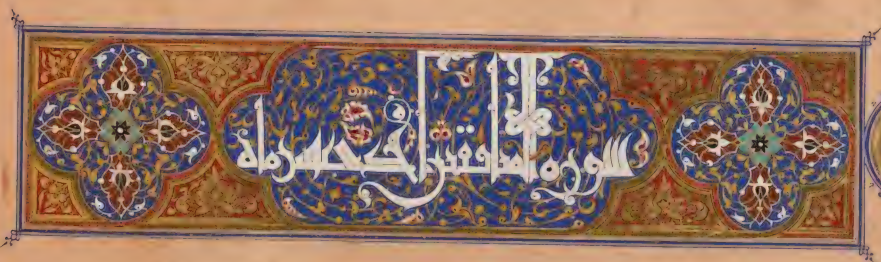 سورة المنافقين احدى عشر اية